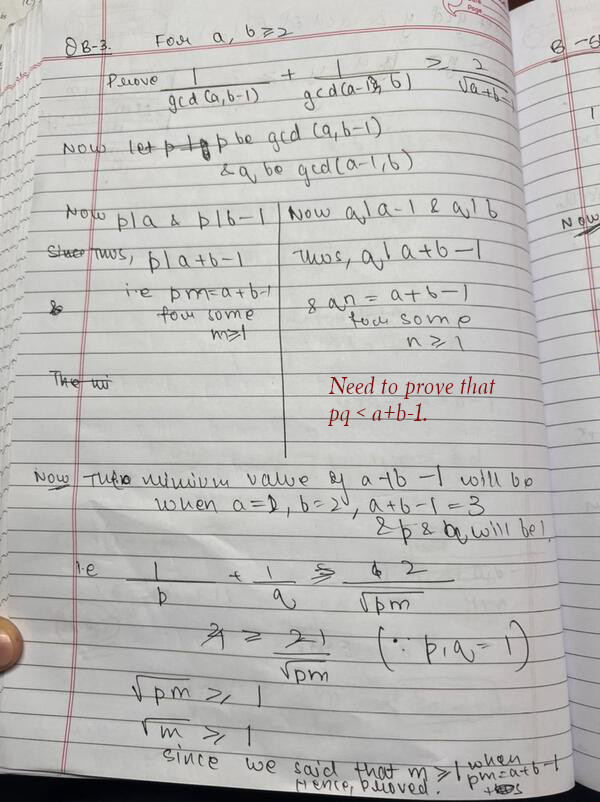 QB-3. For a, b ≥ 2
Prove 1/gcd(a,b-1) + 1/gcd(a-1,b) ≥ 2/√a+b-1
Now let p be gcd (a,b-1)
& q be gcd(a-1,b)
Now p|a & p|b-1
Thus, p|a+b-1
i.e pm=a+b-1
for some
m≥1
Now q|a-1 & q|b
Thus, q|a+b-1
& qn = a+b-1
for some
n ≥ 1
The mi
Need to prove that
pq < a+b-1.
Now The minium value of a+b-1 will be
when a=2, b=2, a+b-1=3
& p & q will be 1
i.e 1/p + 1/q ≥ 2/√pm
1 ≥ 1/√pm (∵ p,q = 1)
√pm ≥ 1
√m ≥ 1
since we said that m ≥ 1 when
pm=a+b-1
Hence, proved.
B-6
Now